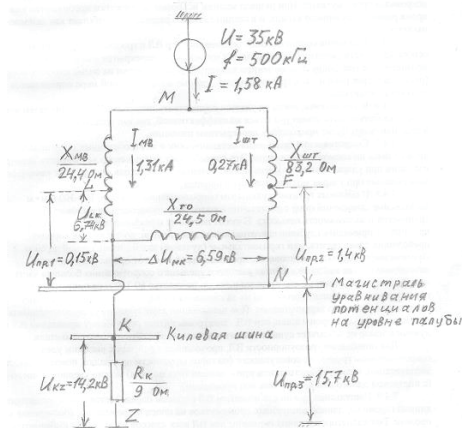 U = 35кВ
f = 500кГц
I = 1,58 кА
M
Xмв
24,4 Ом
Iмв
1,31кА
Iшт
0,27кА
Xшт
83,2 Ом
L
F
ULK
6,74кВ
Xто
24,5 Ом
Uпр1=0,15кВ
ΔUNK=6,59кВ
Uпр2=1,4кВ
N
Магистраль
уравнивания
потенциалов
на уровне палубы
K
Килевая шина
UKZ=14,2кВ
RK
9 Ом
Uпр3=15,7кВ
Z